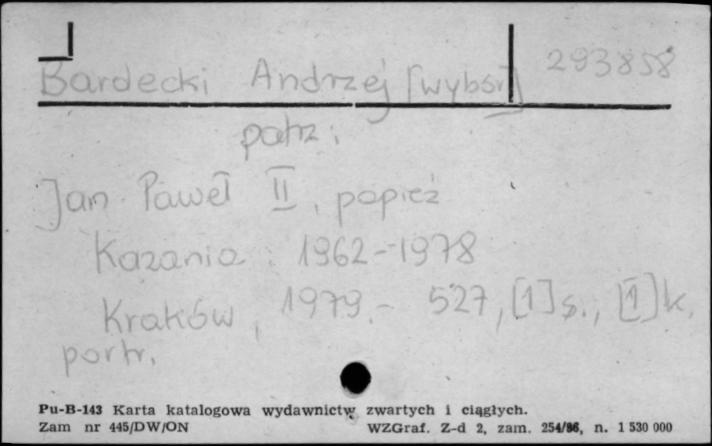 Bardecki Andrzej [wybór] 293858
patrz:
Jan Paweł II, papież
Kazania : 1962-1978
Kraków, 1979.- 527, [1] s., [1] k,
portr.
Pu-B-143 Karta katalogowa wydawnictw zwartych i ciągłych.
Zam nr 445/DW/ON WZGraf. Z-d 2, zam. 254/86, n. 1 530 000